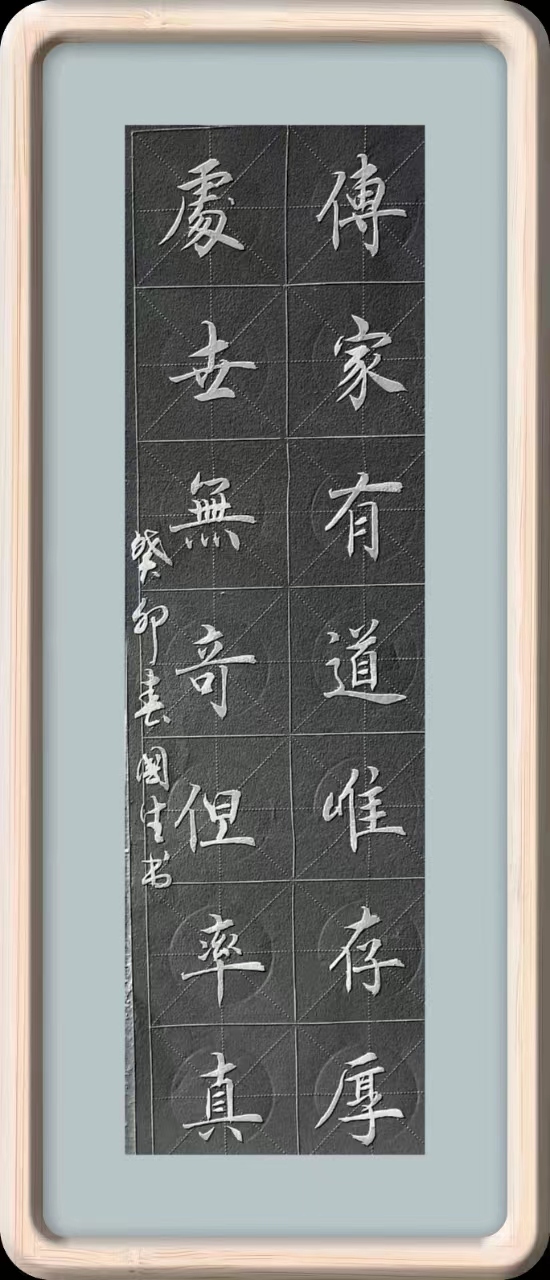 傳家有道唯存厚
處世無奇但率真
癸卯春國生书